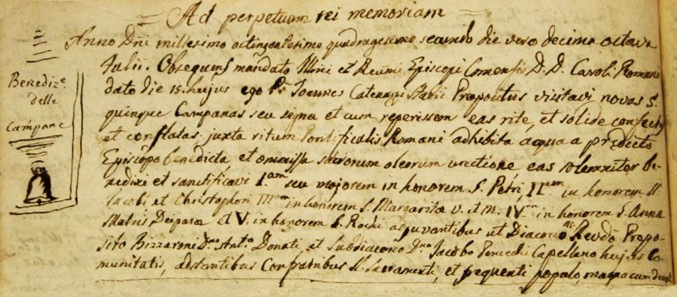 Ad perpetuam rei memoriam
Anno Dni millesimo octingentesimo quadragesimo secundo die vero decima octava
Julii. Obsequens mandato Illmi et Reumi Episcopi Comensis D. D. Caroli Romanò
dato die 15. hujus ego Joannes Præpositus visitavi novas
quinque Campanas seu signa et cum reperissem eas rite, et solide confectas
et conflatas juxta ritum Pontificalis Romani adhibita acqua a prædicto
Episcopo benedicta et omissa sacrorum oleorum unctione eas solemniter be-
nedixi et sanctificavi 1.am seu majorem in honorem S. Petri, II.am in honorem SS
Jacobi et Christophori III.am in honorem S. Margaritæ V. et M. IV.am in honorem S. Annæ
Matris Deiparæ et V. in honorem S. Rochi adjuvantibus et Diacono Revdo Præpo-
sito Bizzaroni Dno Ant.o Donati, et Subdiacono Dno Jacobo Capellano hujus Co-
munitatis, adstantibus Confratribus SS. Sacramenti, et frequenti populo, magna cum
Benediz.e
delle
Campane